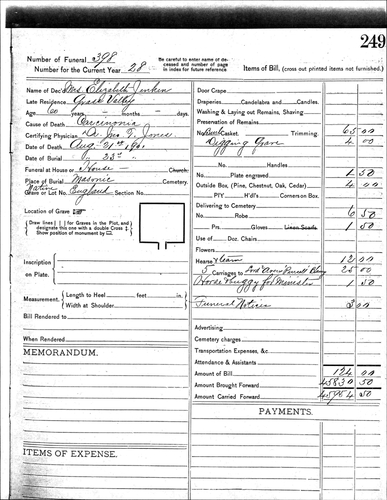 249
Number of Funeral 398
Number for the Current Year 28
Be carefull to enter name of deceased and number of page in index for future reference.
Items of Bill, (cross out printed items not furnished.)
Name of Dec'd Mrs Elizabeth Jenkin
Late Residence Grass Valley
Age 60 years - months - days.
Cause of Death Carcinonia
Certifying Physician Dr. Geo. F. Jones
Date of Death Aug. 21st 1901
Date of Burial " 23rd "
Funeral at House or House Church:
Place of Burial Masonic Cemetery.
Native England
Grave or Lot No. Section No.
Location of Grave
Draw lines for Graves in the Plot, and designate this one with a double Cross
Show position of monument by
Inscription on Plate.
Measurement. Length to Heel feet in.
Width at Shoulder
Bill Rendered to
When Rendered
MEMORANDUM.
ITEMS OF EXPENSE.
Door Crape
Draperies Candelabra and Candles.
Washing & Laying out Remains, Shaving
Preservation of Remains
No. Casket. Trimming. 65 00
Digging Grave 4 00
No. Handles
Plate engraved 1 50
Outside Box, (Pine, Chestnut, Oak, Cedar) 4 00
P'I'Y H'd'l's Corners on Box.
Delivering to Cemetery
No. Robe 6 50
Prs. Gloves Linen Scarfs 1 50
Use of Doz. Chairs
Flowers
Hearse 12 00
5 Carriages to 25 00
Horse & Buggy for Minister 1 50
Funeral Notices 3 00
Advertising
Cemetery charges
Transportation Expenses, &c
Attendance & Assistants
Amount of Bill 124 00
Amount Brought Forward 45830 50
Amount Carried Forward 45954 50
PAYMENTS.